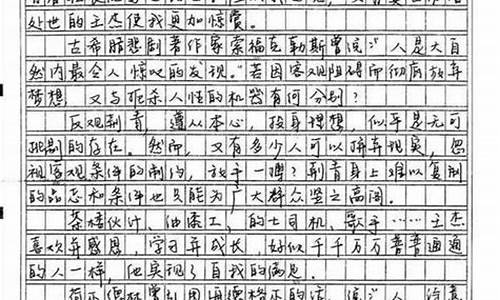 处世的主杰使我更加惊赏。
古希腊悲剧著作家索福克勒斯曾说:"人是大自
然内最令人惊叹的发现。"若因客观阻碍而彻底放弃
梦想,又与扼杀人性的机器有何分别?
反观荆青,遵从本心,投身理想,似乎是无可
挑剔的存在。然而,又有多少人可以摒弃现实,忽
视客观条件的制约,放手一搏?荆青身上难以复制
的品志和条件也只能为广大群众竖之高阁。
茶楼伙计、油漆工、的士司机、歌手……主杰
喜欢并感恩,学习并成长,好似千千万万普普通通
的人一样,他实现了自我的满足。